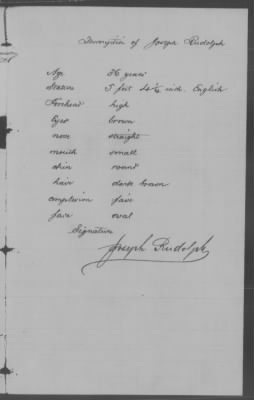 Description of Joseph Rudolph
Age 36 years
Stature 5 feet 4 1/4 inch. English
Forehead high
Eyes brown
nose straight
mouth small
chin round
hair dark brown
complexion fair
face oval
Signature
Joseph Rudolph